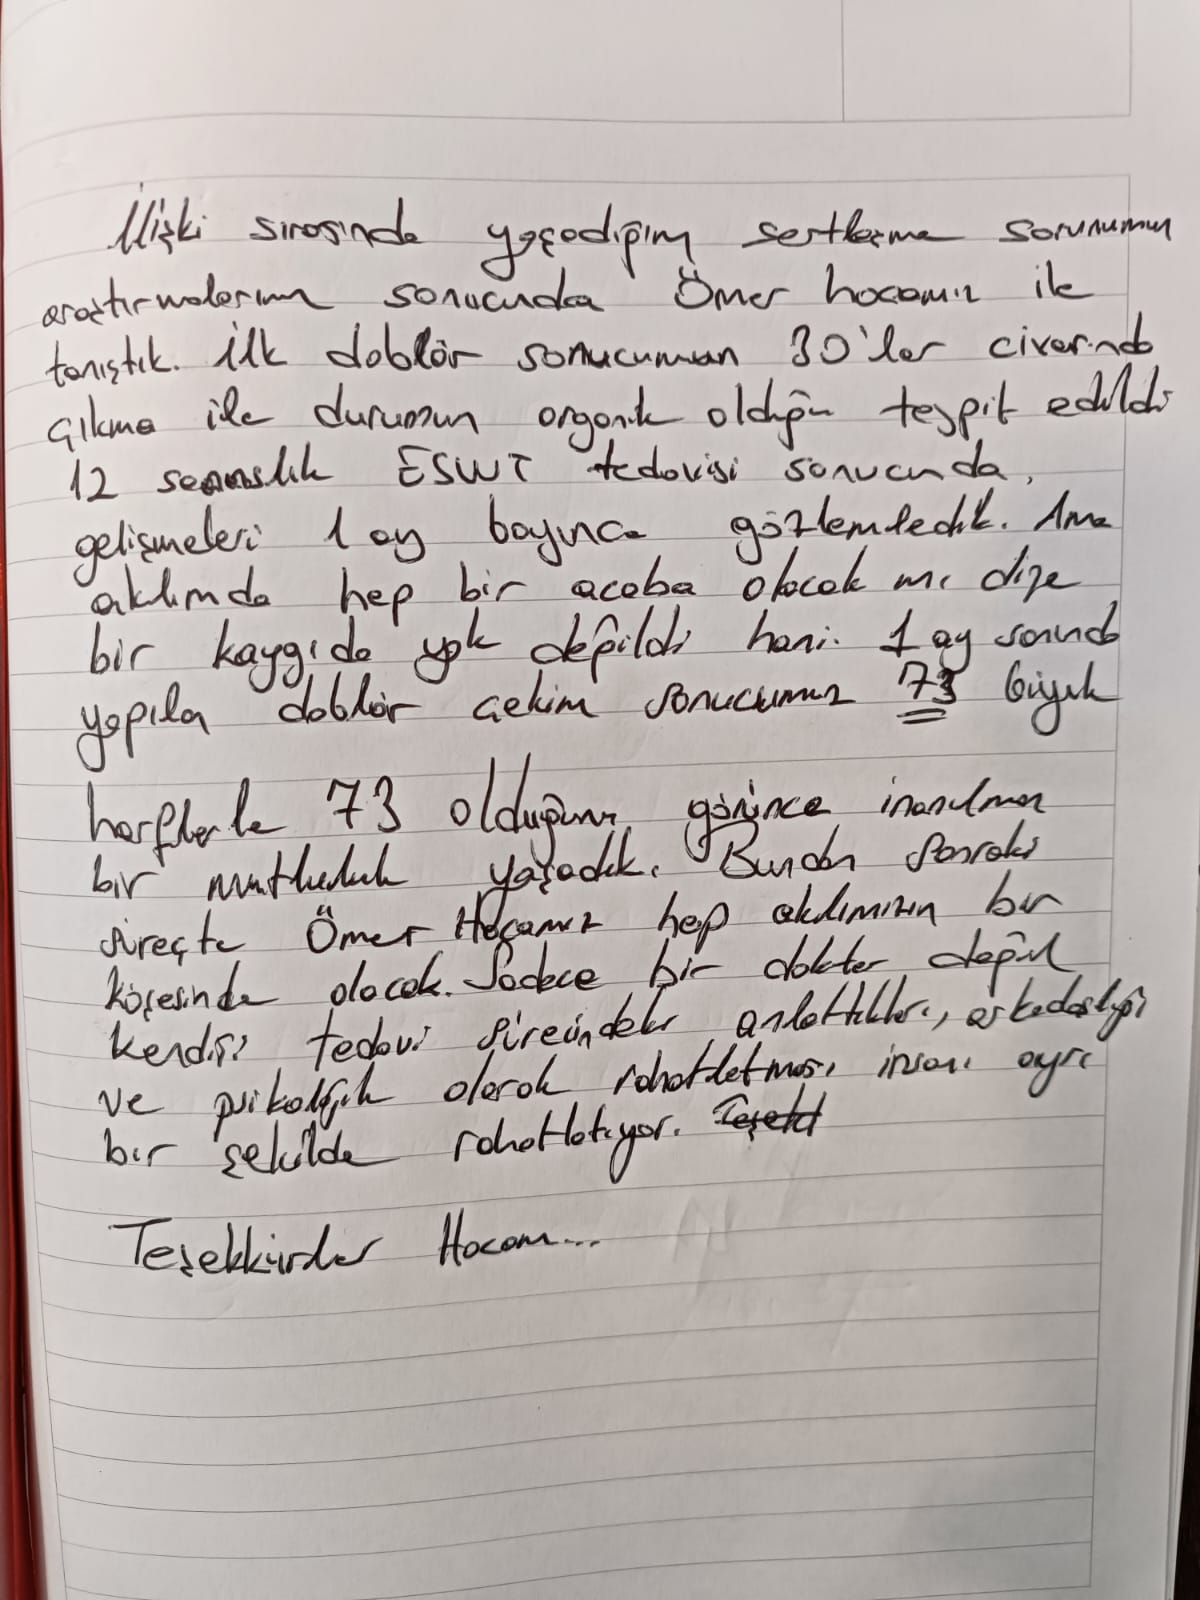 İlişki sırasında yaşadığım sertleşme sorunumun
araştırmalarım sonucunda Ömer hocamız ile
tanıştık. İlk doblör sonucumun 30'lar civarında
çıkma ile durumun organik olduğu tespit edildi
12 seanslık ESWT tedavisi sonucunda,
gelişmeleri 1 ay boyunca gözlemledik. Ama
aklımda hep bir acaba olacak mı diye
bir kaygıda yok değildi hani. 1 ay sonunda
yapılan doblör çekim sonucumuz 73 büyük
harflerle 73 olduğunu görünce inanılmaz
bir mutluluk yaşadık. Bundan sonraki
süreçte Ömer Hocamız hep aklımızın bir
köşesinde olacak. Sadece bir doktor değil
kendisi tedavi sürecindeki anlattıkları, arkadaşlığı
ve psikolojik olarak rahatlatması insanı ayrı
bir şekilde rahatlatıyor. Teşekk
Teşekkürler Hocam...